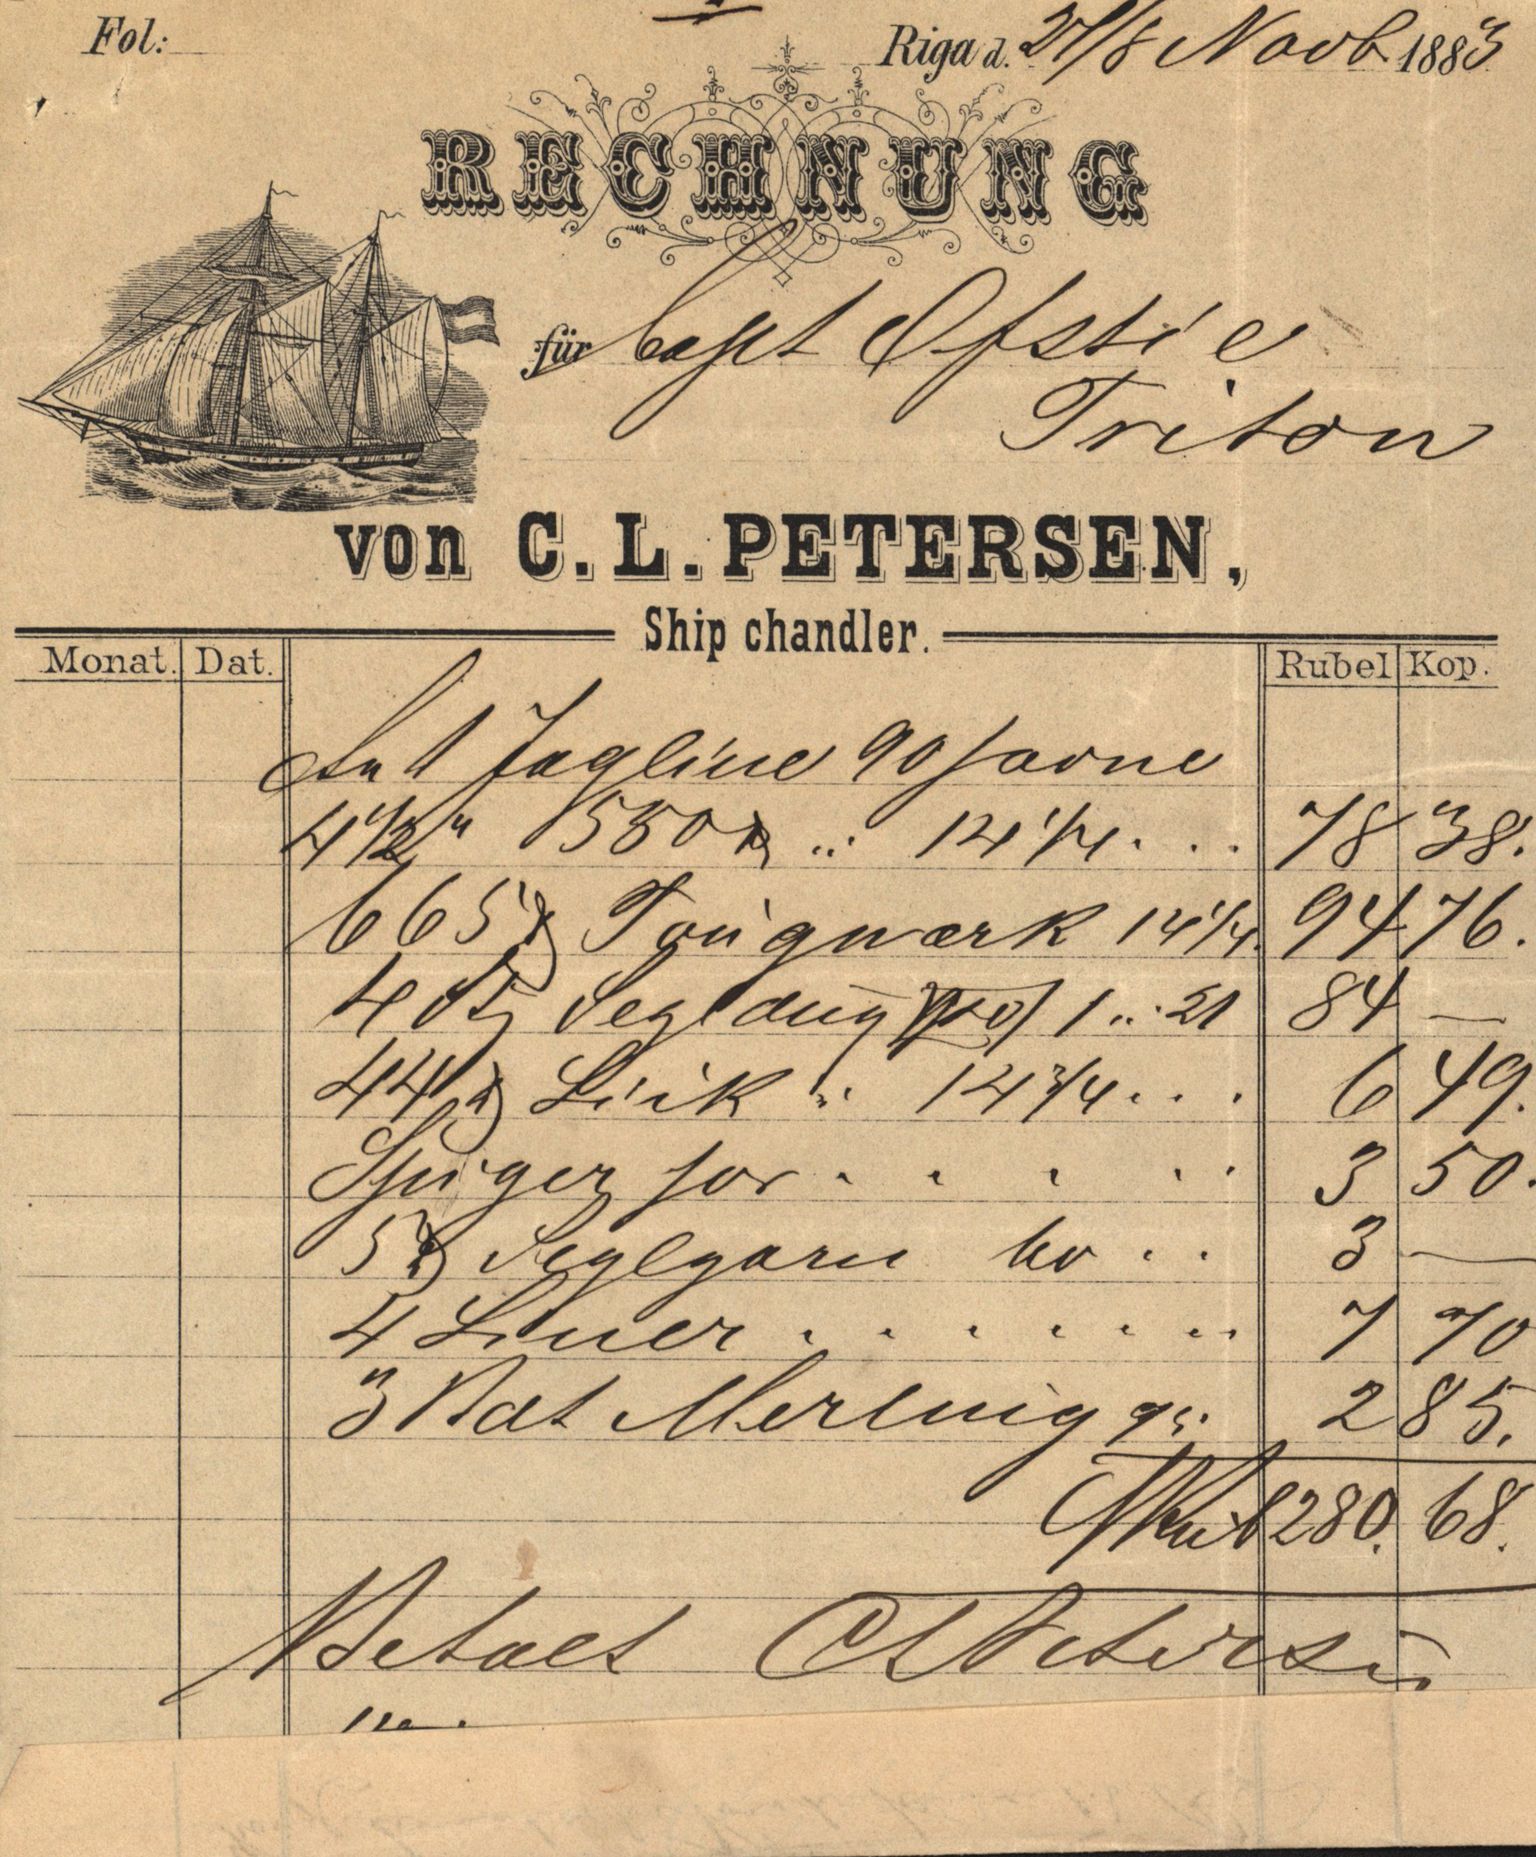 Fol:
Riga d. 27/8 Novb 1883
RECHNUNG
für Capt Ofstie
Triton
von C. L. PETERSEN,
Ship chandler.
Monat. Dat. Rubel Kop.
1 Jagline 90 favne
4 1/2" 550 ℔ 14 1/4 . . . 78 38.
665 ℔ Tougwærk 14 1/4. 94 76.
4 St Segldug 1 21 84 —
44 ℔ Liik 14 3/4 . . . 6 49.
Spiger for . . . . . 3 50.
5 ℔ Seglgarn 60 . . 3 —
4 Liner . . . . . . 7 70
3 Merling 95. 2 85.
Rub 280. 68.
Betalt C L Petersen